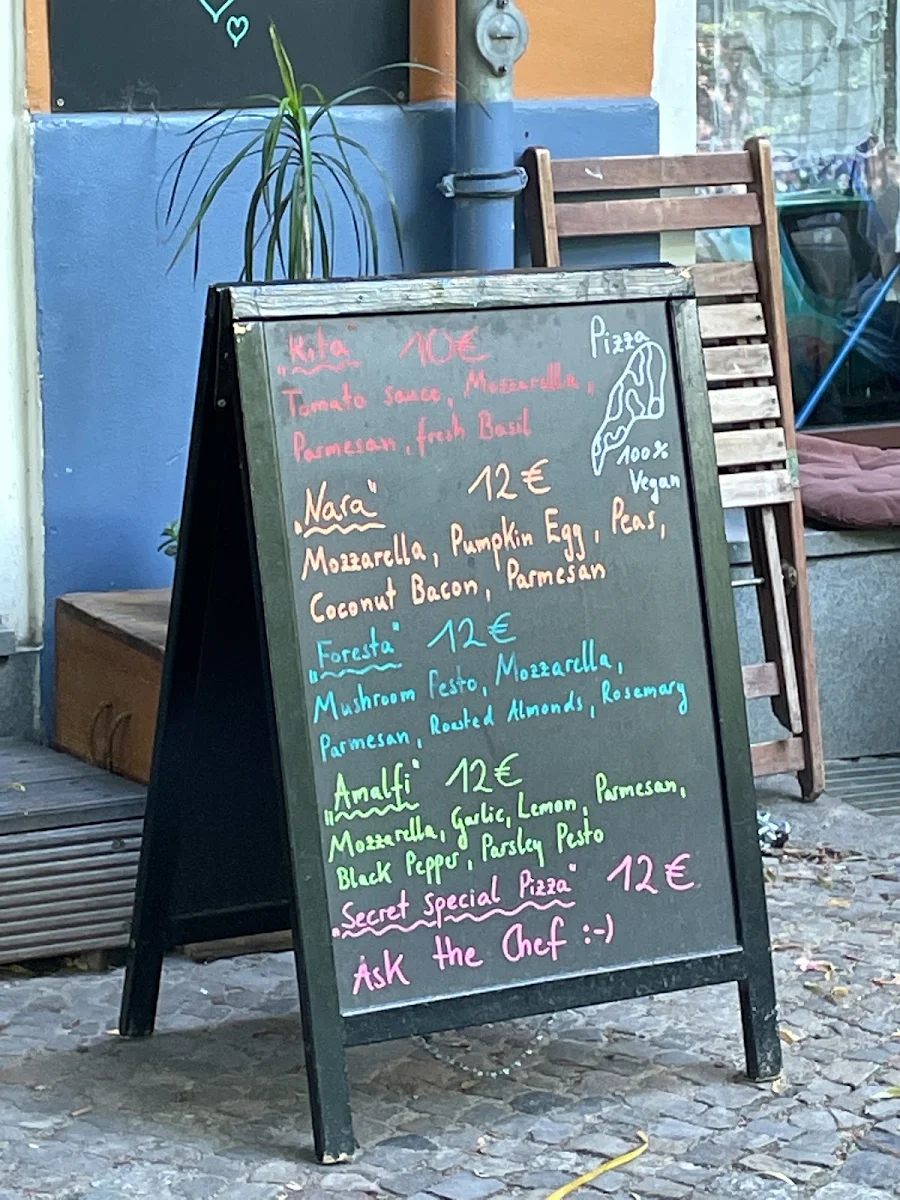 „Rita“ 10€
Tomato sauce, Mozzarella,
Parmesan, fresh Basil
Pizza
100%
Vegan
„Nara“ 12€
Mozzarella, Pumpkin Egg, Peas,
Coconut Bacon, Parmesan
„Foresta“ 12€
Mushroom Pesto, Mozzarella,
Parmesan, Roasted Almonds, Rosemary
„Amalfi“ 12€
Mozzarella, Garlic, Lemon, Parmesan,
Black Pepper, Parsley Pesto
„Secret special Pizza“ 12€
Ask the Chef :-)